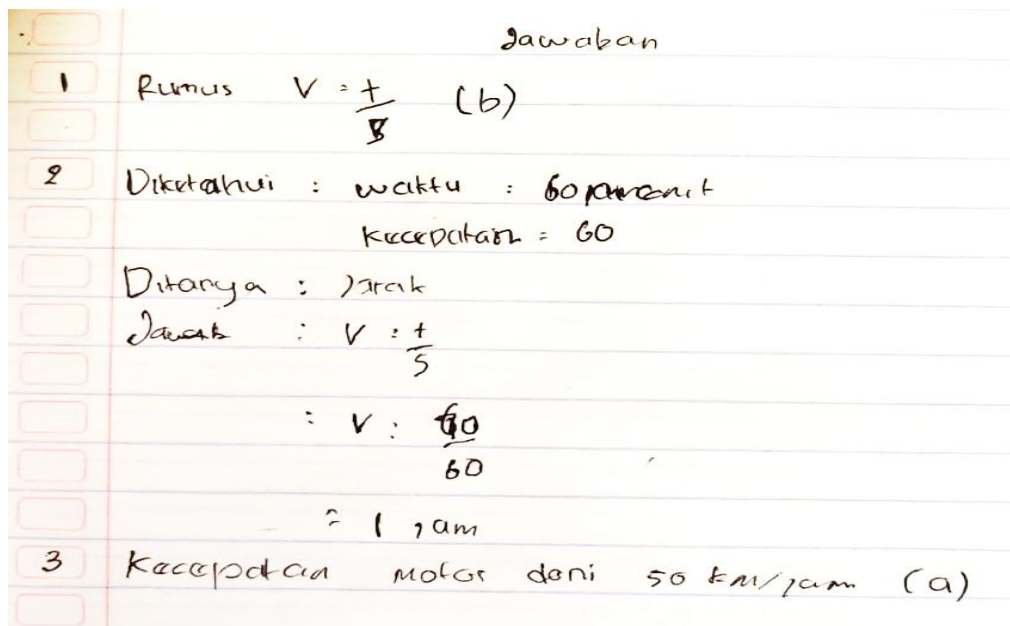 Jawaban
1 Rumus V = t/s (b)
2 Diketahui : waktu : 60 menit
Kecepatan = 60
Ditanya : Jarak
Jawab : V : t/s
: V : 60/60
= 1 jam
3 Kecepatan motor deni 50 km/jam (a)